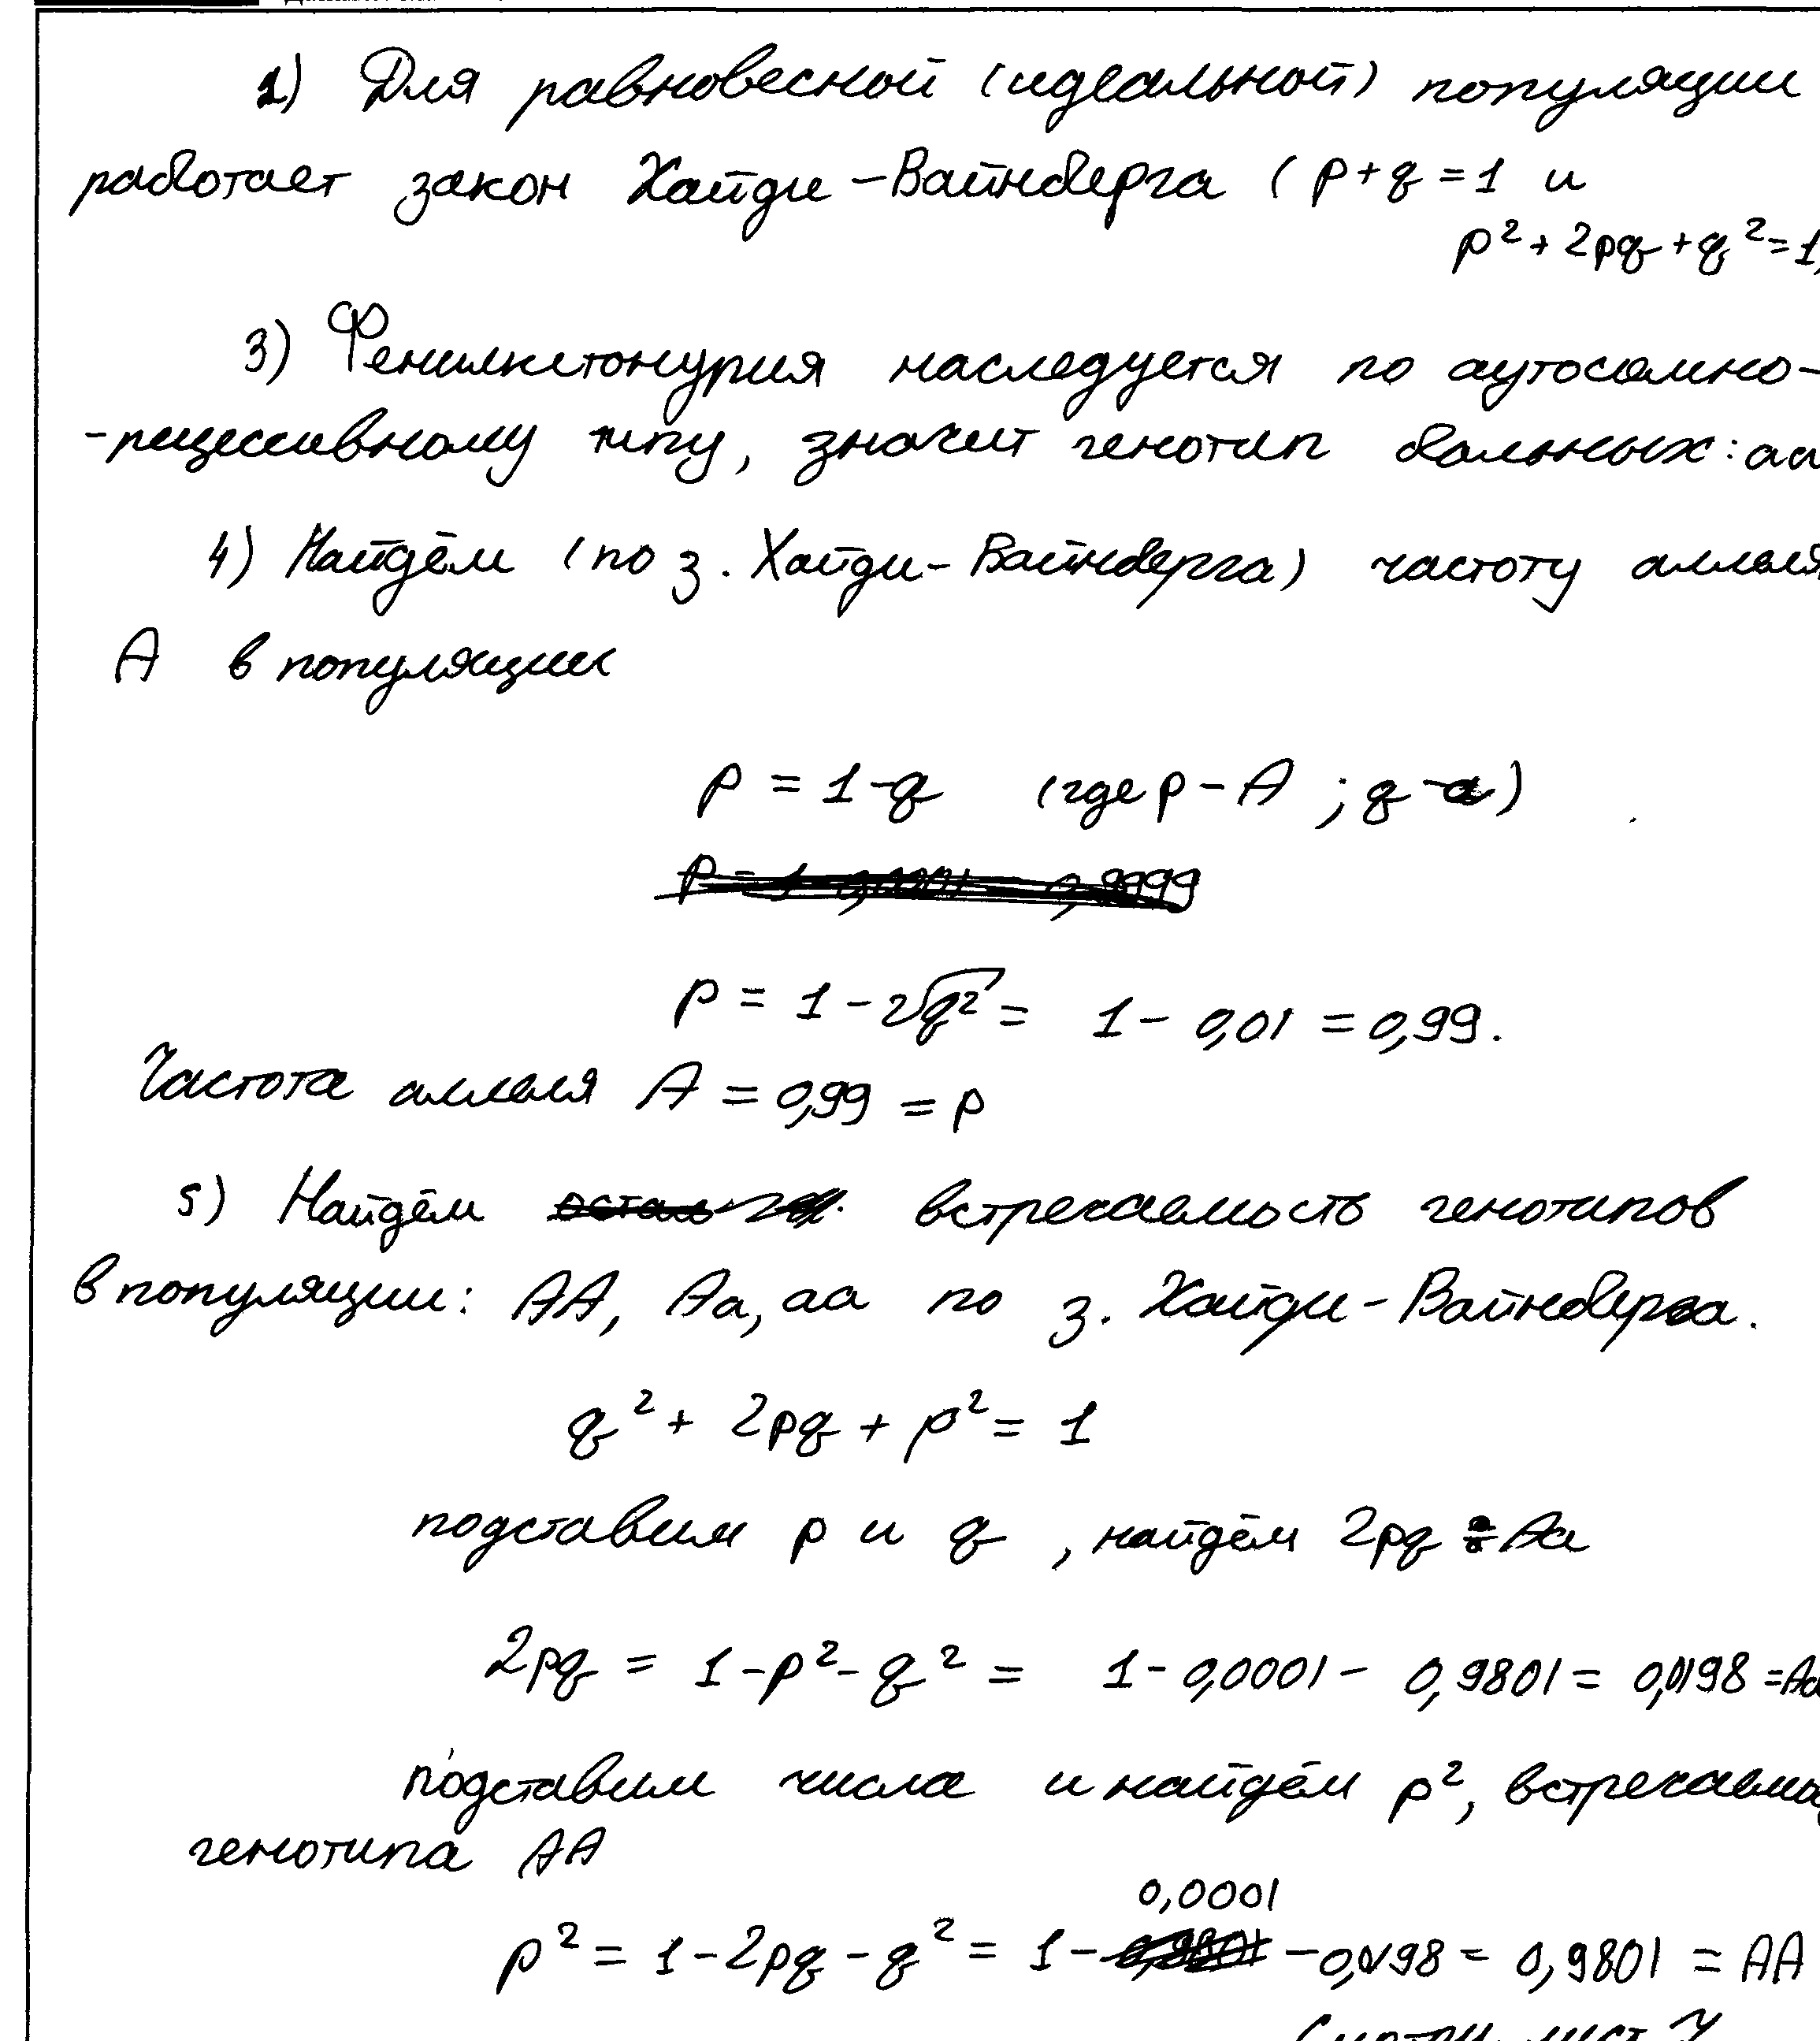 1) Для равновесной (идеальной) популяции
работает закон Хайди-Вайнберга (p+q=1 и
p²+2pq+q²=1,
3) Фенилкетонурия наследуется по аутосомно-
-рецессивному типу, значит генотип больных: аа
4) Найдём (по з. Хайди-Вайнберга) частоту аллеля
А в популяции
p = 1-q (где p-А ; q-а)
p = 1-0,0001 = 0,9999
p = 1-2√q² = 1-0,01 = 0,99.
Частота аллеля А = 0,99 = p
5) Найдём встречаемость генотипов
в популяции: АА, Аа, аа по з. Хайди-Вайнберга.
q² + 2pq + p² = 1
подставим p и q , найдём 2pq = Аа
2pq = 1-p²-q² = 1-0,0001-0,9801 = 0,0198 = Аа
подставим числа и найдём p², встречаемо
генотипа АА
0,0001
p² = 1-2pq-q² = 1-0,9801-0,0198 = 0,9801 = АА